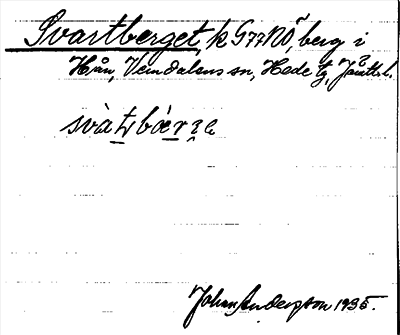 Svartberget, k G77NÖ, berg i
Hån, Vemdalens sn, Hede tg, Jämtl.
svàtbær
Johan Anderzson 1935.